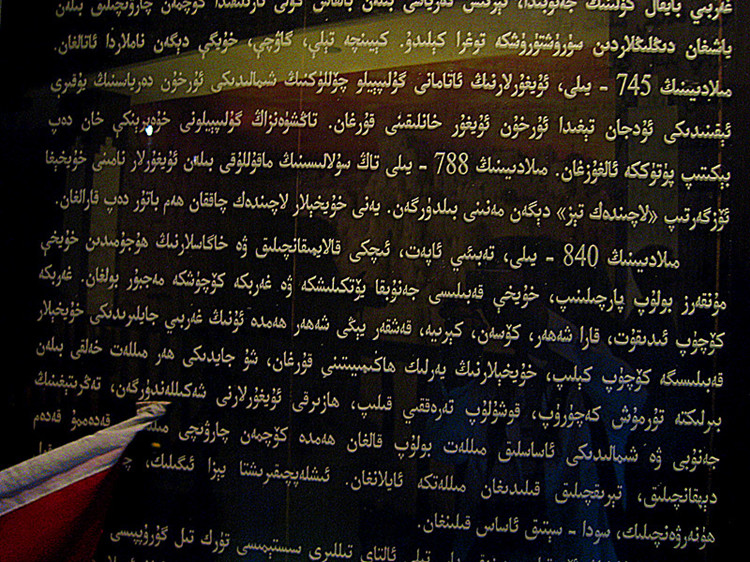 غەربىي بايقال كۆلىنىڭ جەنۇبىدا، ئېرتىش دەرياسى بىلەن بالقاش كۆلى ئارىلىقىدا كۆچمەن چارۋىچىلىق بىلەن
ياشىغان دىڭلىڭلاردىن سۈرۈشتۈرۈشكە توغرا كېلىدۇ. كېيىنچە تېلى، گاۋچې، خۇيگې دېگەن ناملاردا ئاتالغان.
مىلادىيىنىڭ 745 - يىلى، ئۇيغۇرلارنىڭ ئاتامانى گۇلىپېيلو چۆللۈكنىڭ شىمالىدىكى ئورخۇن دەرياسىنىڭ يۇقىرى
ئېقىنىدىكى ئۆدجان تېغىدا ئورخۇن ئۇيغۇر خانلىقىنى قۇرغان. تاڭشۈەنزاڭ گۇلىپېيلونى خۇەيرېنكې خان دەپ
بېكىتىپ پۈتۈككە ئالغۇزغان. مىلادىيىنىڭ 788 - يىلى تاڭ سۇلالىسىنىڭ ماقۇللۇقى بىلەن ئۇيغۇرلار نامىنى خۇيخېغا
ئۆزگەرتىپ «لاچىندەك تېز» دېگەن مەنىنى بىلدۈرگەن. يەنى خۇيخېلار لاچىندەك چاققان ھەم باتۇر دەپ قارالغان.
مىلادىيىنىڭ 840 - يىلى، تەبىئىي ئاپەت، ئىچكى قالايمىقانچىلىق ۋە خاگاسلارنىڭ ھۇجۇمىدىن خۇيخې
مۇنقەرز بولۇپ پارچىلىنىپ، خۇيخې قەبىلىسى جەنۇبقا يۆتكىلىشكە ۋە غەربكە كۆچۈشكە مەجبۇر بولغان. غەربكە
كۆچۈپ ئىدىقۇت، قارا شەھەر، كۆسەن، كېرىيە، قەشقەر يېڭى شەھەر ھەمدە ئۇنىڭ غەربىي جايلىرىدىكى خۇيخېلار
قەبىلىسىگە كۆچۈپ كېلىپ، خۇيخېلارنىڭ يەرلىك ھاكىمىيىتىنى قۇرغان، شۇ جايدىكى ھەر مىللەت خەلقى بىلەن
بىرلىكتە تۇرمۇش كەچۈرۈپ، قوشۇلۇپ تەرەققىي قىلىپ، ھازىرقى ئۇيغۇرلارنى شەكىللەندۈرگەن، تەڭرىتېغىنىڭ
جەنۇبى ۋە شىمالىدىكى ئاساسلىق مىللەت بولۇپ قالغان ھەمدە كۆچمەن چارۋىچى قەدەممۇ قەدەم
دېھقانچىلىق، تېرىقچىلىق قىلىدىغان مىللەتكە ئايلانغان. ئىشلەپچىقىرىشتا يېزا ئىگىلىك،
ھۈنەرۋەنچىلىك، سودا - سېتىق ئاساس قىلىنغان.
تىلى ئالتاي تىللىرى سىستېمىسى تۈرك تىل گۇرۇپپىسى